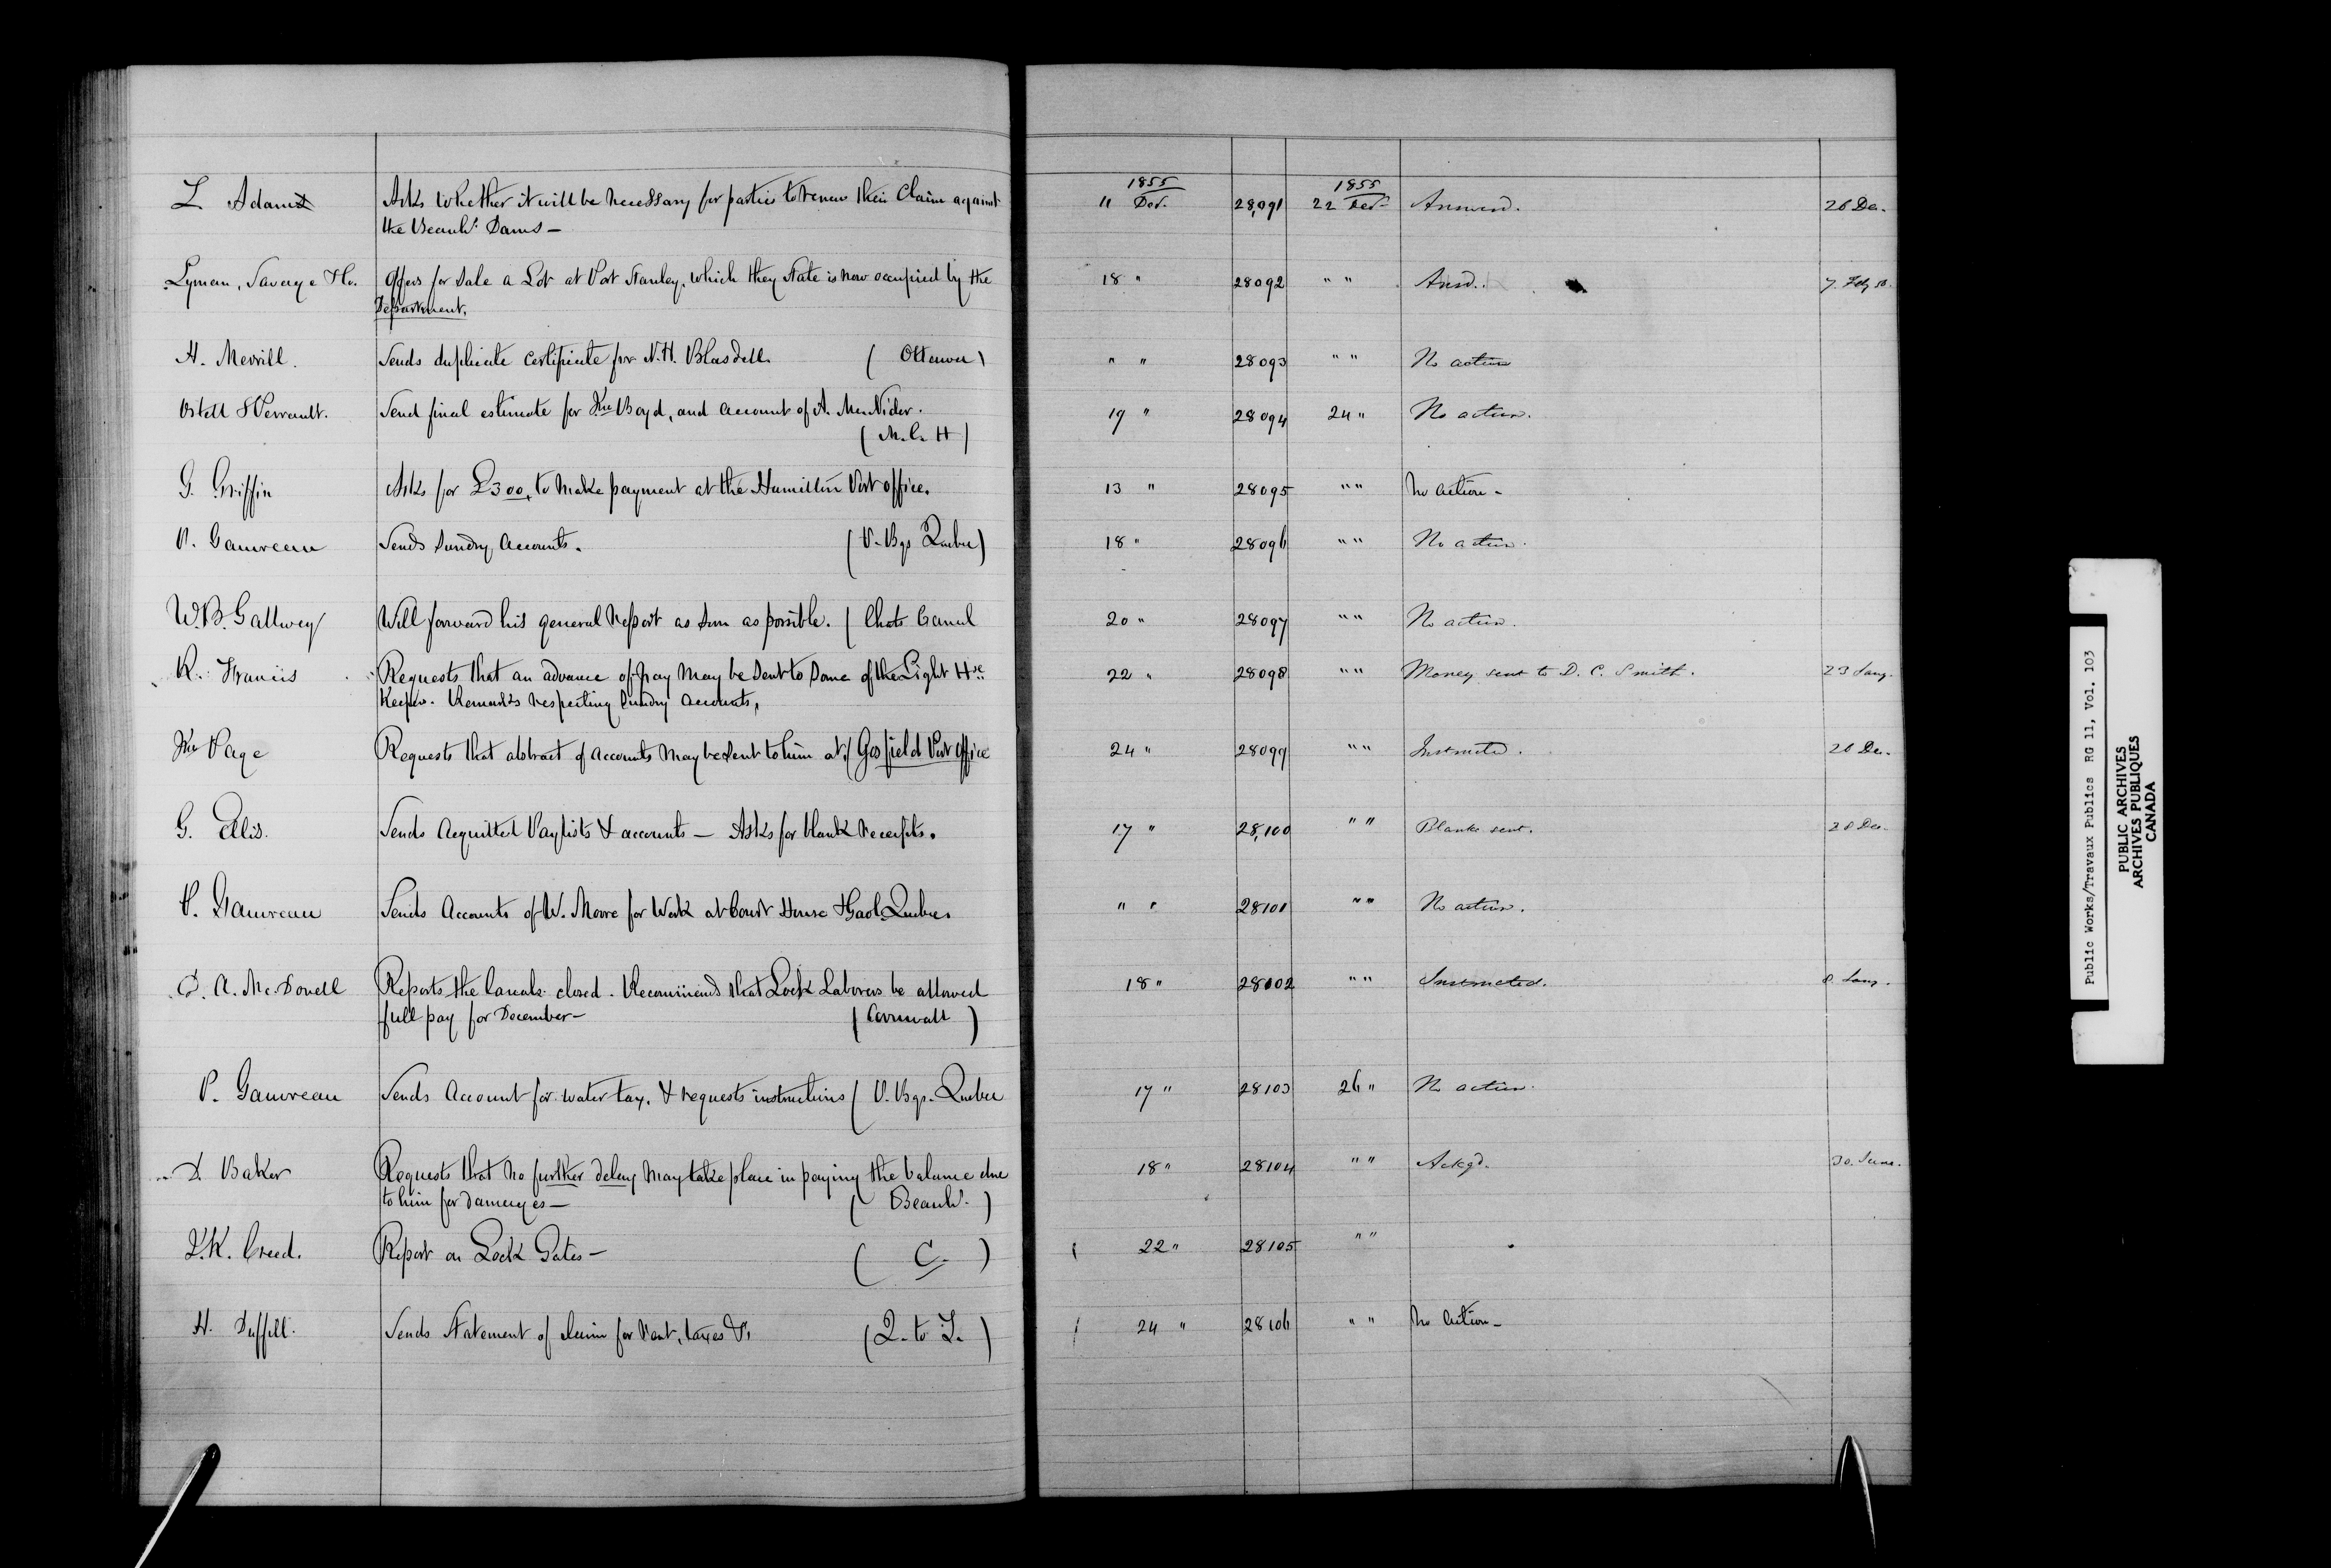 1855 1855
L Adams Asks whether it will be necessary for parties to renew their Claim against 11 Dec. 28,091 22 Dec. Answered. 26 Dec.
the Beauhs. Dams —
Lyman, Savage & Co. Offers for Sale a Lot at Port Stanley, which they State is now occupied by the 18 " 28092 " " Answd. 7. Feby 56.
Department.
H. Merrill. Sends duplicate certificate for N.H. Blasdell. ( Ottawa ) " " 28093 " " No action
Ostell & Perrault. Send final estimate for Jno Boyd, and account of A. McNider. 19 " 28094 24 " No action.
( M.C.H )
G. Griffin Asks for £300, to make payment at the Hamilton Post office. 13 " 28095 " " No action -
P. Gauvreau Sends Sundry Accounts. ( P. Bgs Quebec ) 18 " 28096 " " No action.
W.B. Gallwey Will forward his general Report as soon as possible. ( Chats Canal 20 " 28097 " " No action.
R. Francis Requests that an advance of pay may be sent to some of the Light Hse 22 " 28098 " " Money sent to D. C. Smith. 23 Jany.
Keepers. Remarks respecting Sundry accounts,
Jno Page Requests that abstract of accounts may be sent to him at ( Gosfield Post Office 24 " 28099 " " Instructed. 26 Dec.
G. Ellis. Sends Acquitted Paylists & accounts — Asks for blank receipts. 17 " 28,100 " " Blanks sent. 28 Dec.
P. Gauvreau Sends Accounts of W. Moore for Work at Court House & Gaol Quebec. " " 28101 " " No action.
D. A. McDonell Reports the Canals closed. Recommends that Lock Laborers be allowed 18 " 28102 " " Instructed. 8. Jany.
full pay for December — ( Cornwall )
P. Gauvreau Sends Account for water tax, & requests instructions ( P. Bgs. Quebec 17 " 28103 26 " No action.
D. Baker Requests that no further delay may take place in paying the balance due 18 " 28104 " " Ackgd. 30. June.
to him for damages — ( Beauhs. )
Creed. Report on Lock Gates — ( C. ) 22 " 28105 " "
H. Duffill. Sends Statement of claim for Rent, taxes &c ( Q. to L. ) 24 " 28106 " " No action -
Public Works/Travaux Publics RG 11, Vol. 103
PUBLIC ARCHIVES
ARCHIVES PUBLIQUES
CANADA